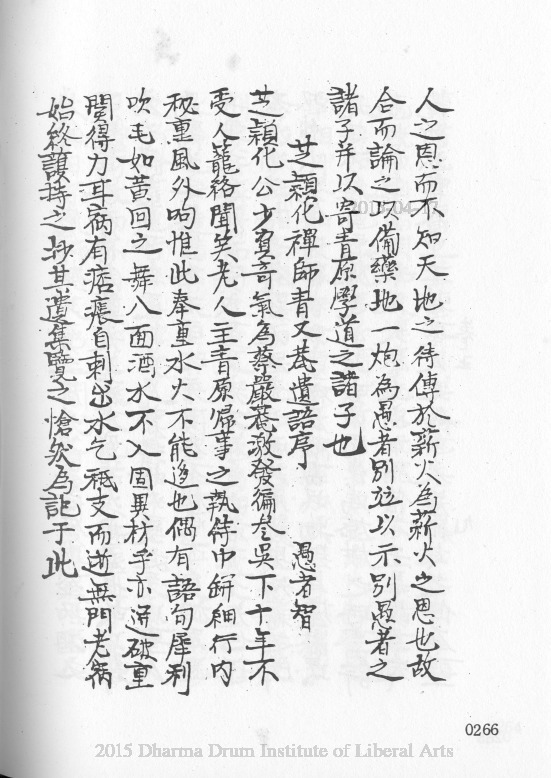 人之恩而不知天地之待傳於薪火為薪火之恩也故
合而論之以備藥地一炮為愚者別竝以示別愚者之
諸子并以寄青原學道之諸子也
芝穎化禪師青又菴遺語序　愚者智
芝穎化公少負奇氣為蔡巖菴激發徧叅吳下十年不
受人籠絡聞笑老人主青原歸事之執侍巾缾細行內
秘重風外呴惟此奉重水火不能逃也偶有語句犀利
吹毛如黃回之舞八面洒水不入固異材乎亦迸破重
關得力耳病有痞痕自刺出水乞秪支而逝無門老病
始終護持之抄其遺集覽之愴然為記于此
0266
2015 Dharma Drum Institute of Liberal Arts